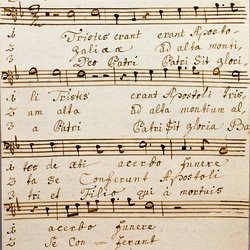 1 Tristes erant erant Aposto-
2 Galiææ ad alta monti
3 Deo Patri Patri Sit glori,
1 li Tristes erant Apostoli tris,
2 um alta ad alta montium al
3 a Patri Patri Sit gloria Pa
1 tes de xti acerbo funere
2 ta Se Conferunt Apostoli
3 tri et Filio qui à mortuis
1 acerbo funere
2 Se Con- ferunt